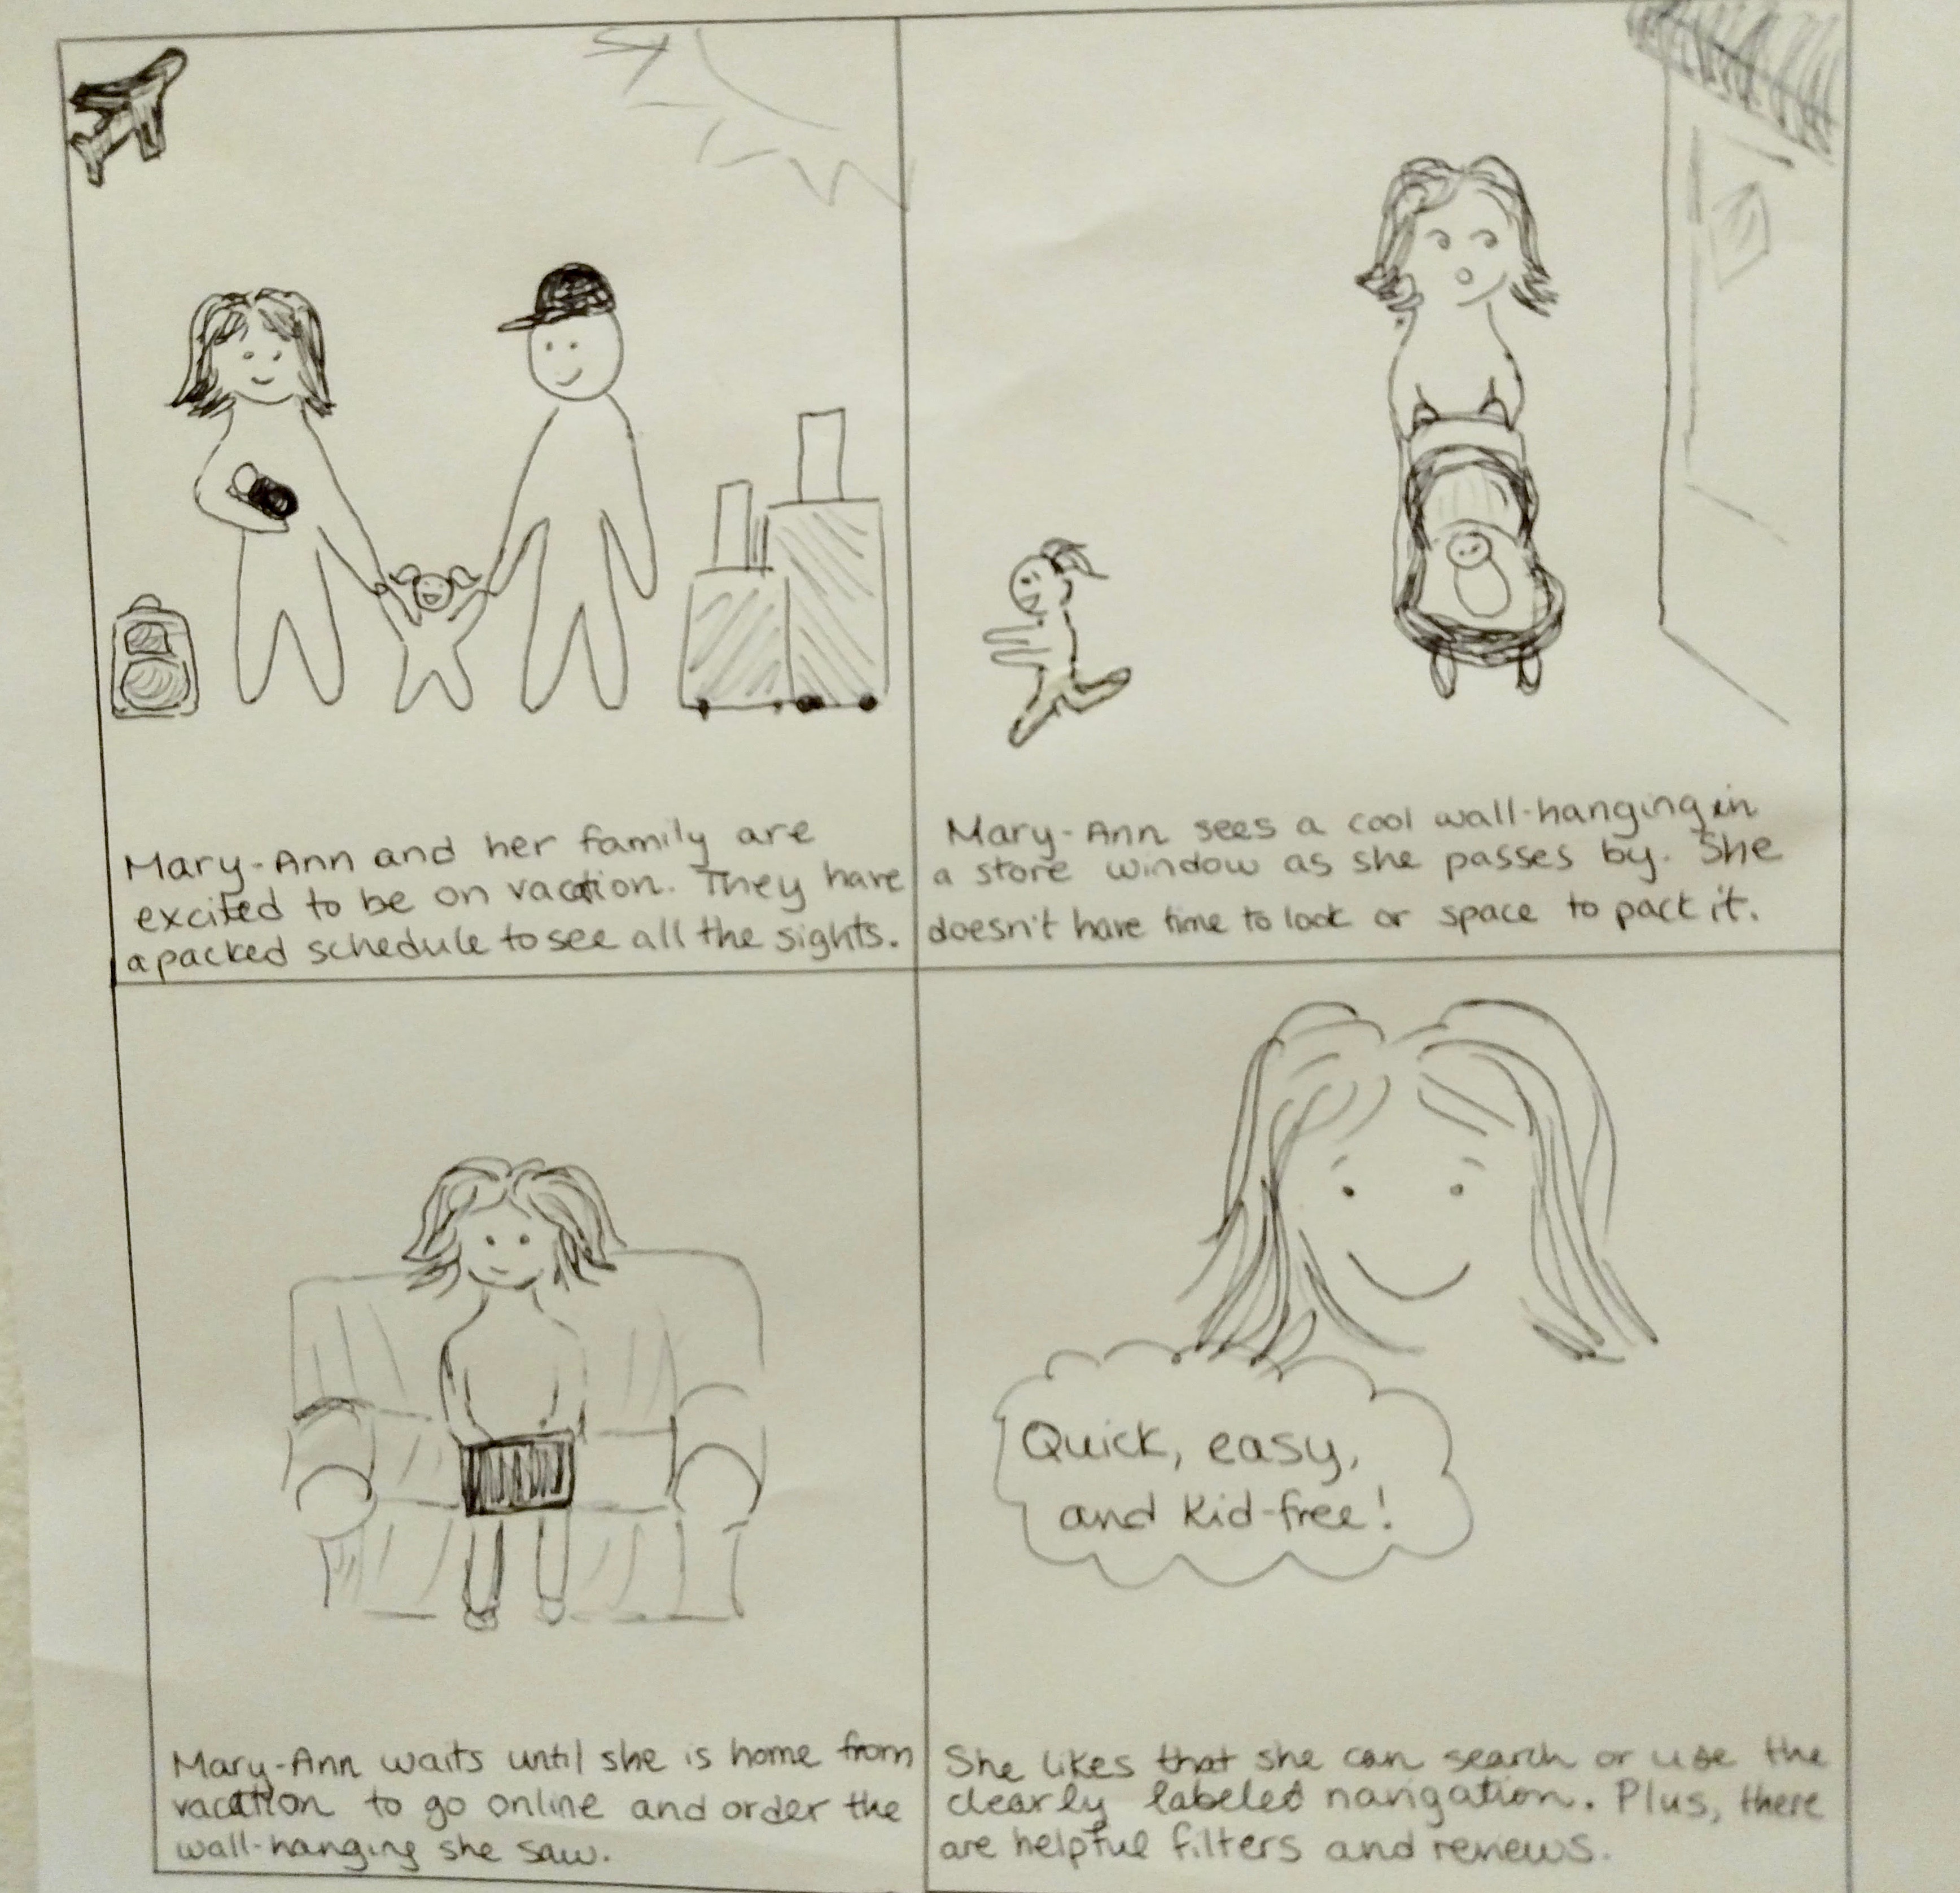 Mary-Ann and her family are
excited to be on vacation. They have
a packed schedule to see all the sights.
Mary-Ann sees a cool wall-hanging in
a store window as she passes by. She
doesn't have time to look or space to pack it.
Mary-Ann waits until she is home from
vacation to go online and order the
wall-hanging she saw.
Quick, easy,
and kid-free!
She likes that she can search or use the
clearly labeled navigation. Plus, there
are helpful filters and reviews.